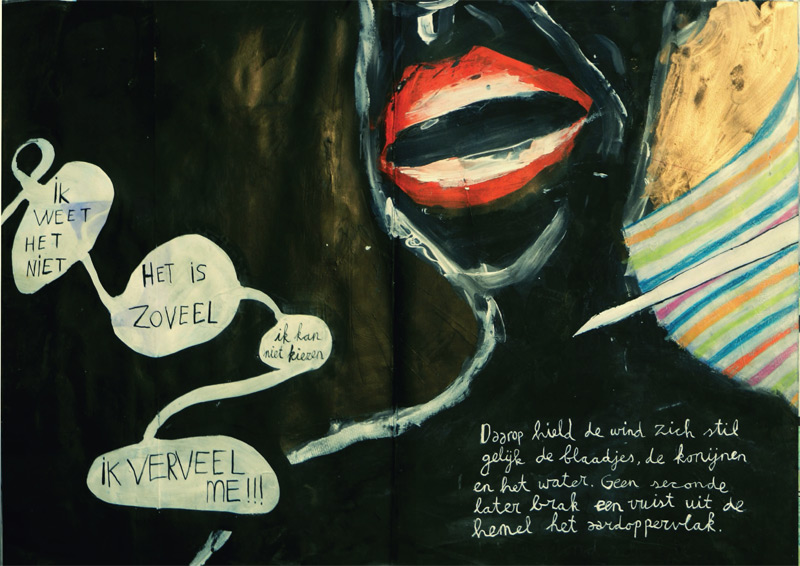 ik
WEET
HET
NIET
HET IS
ZOVEEL
ik kan
niet kiezen
iK VERVEEL
ME!!!
Daarop hield de wind zich stil
gelijk de blaadjes, de konijnen
en het water. Geen seconde
later brak een vuist uit de
hemel het aardoppervlak.